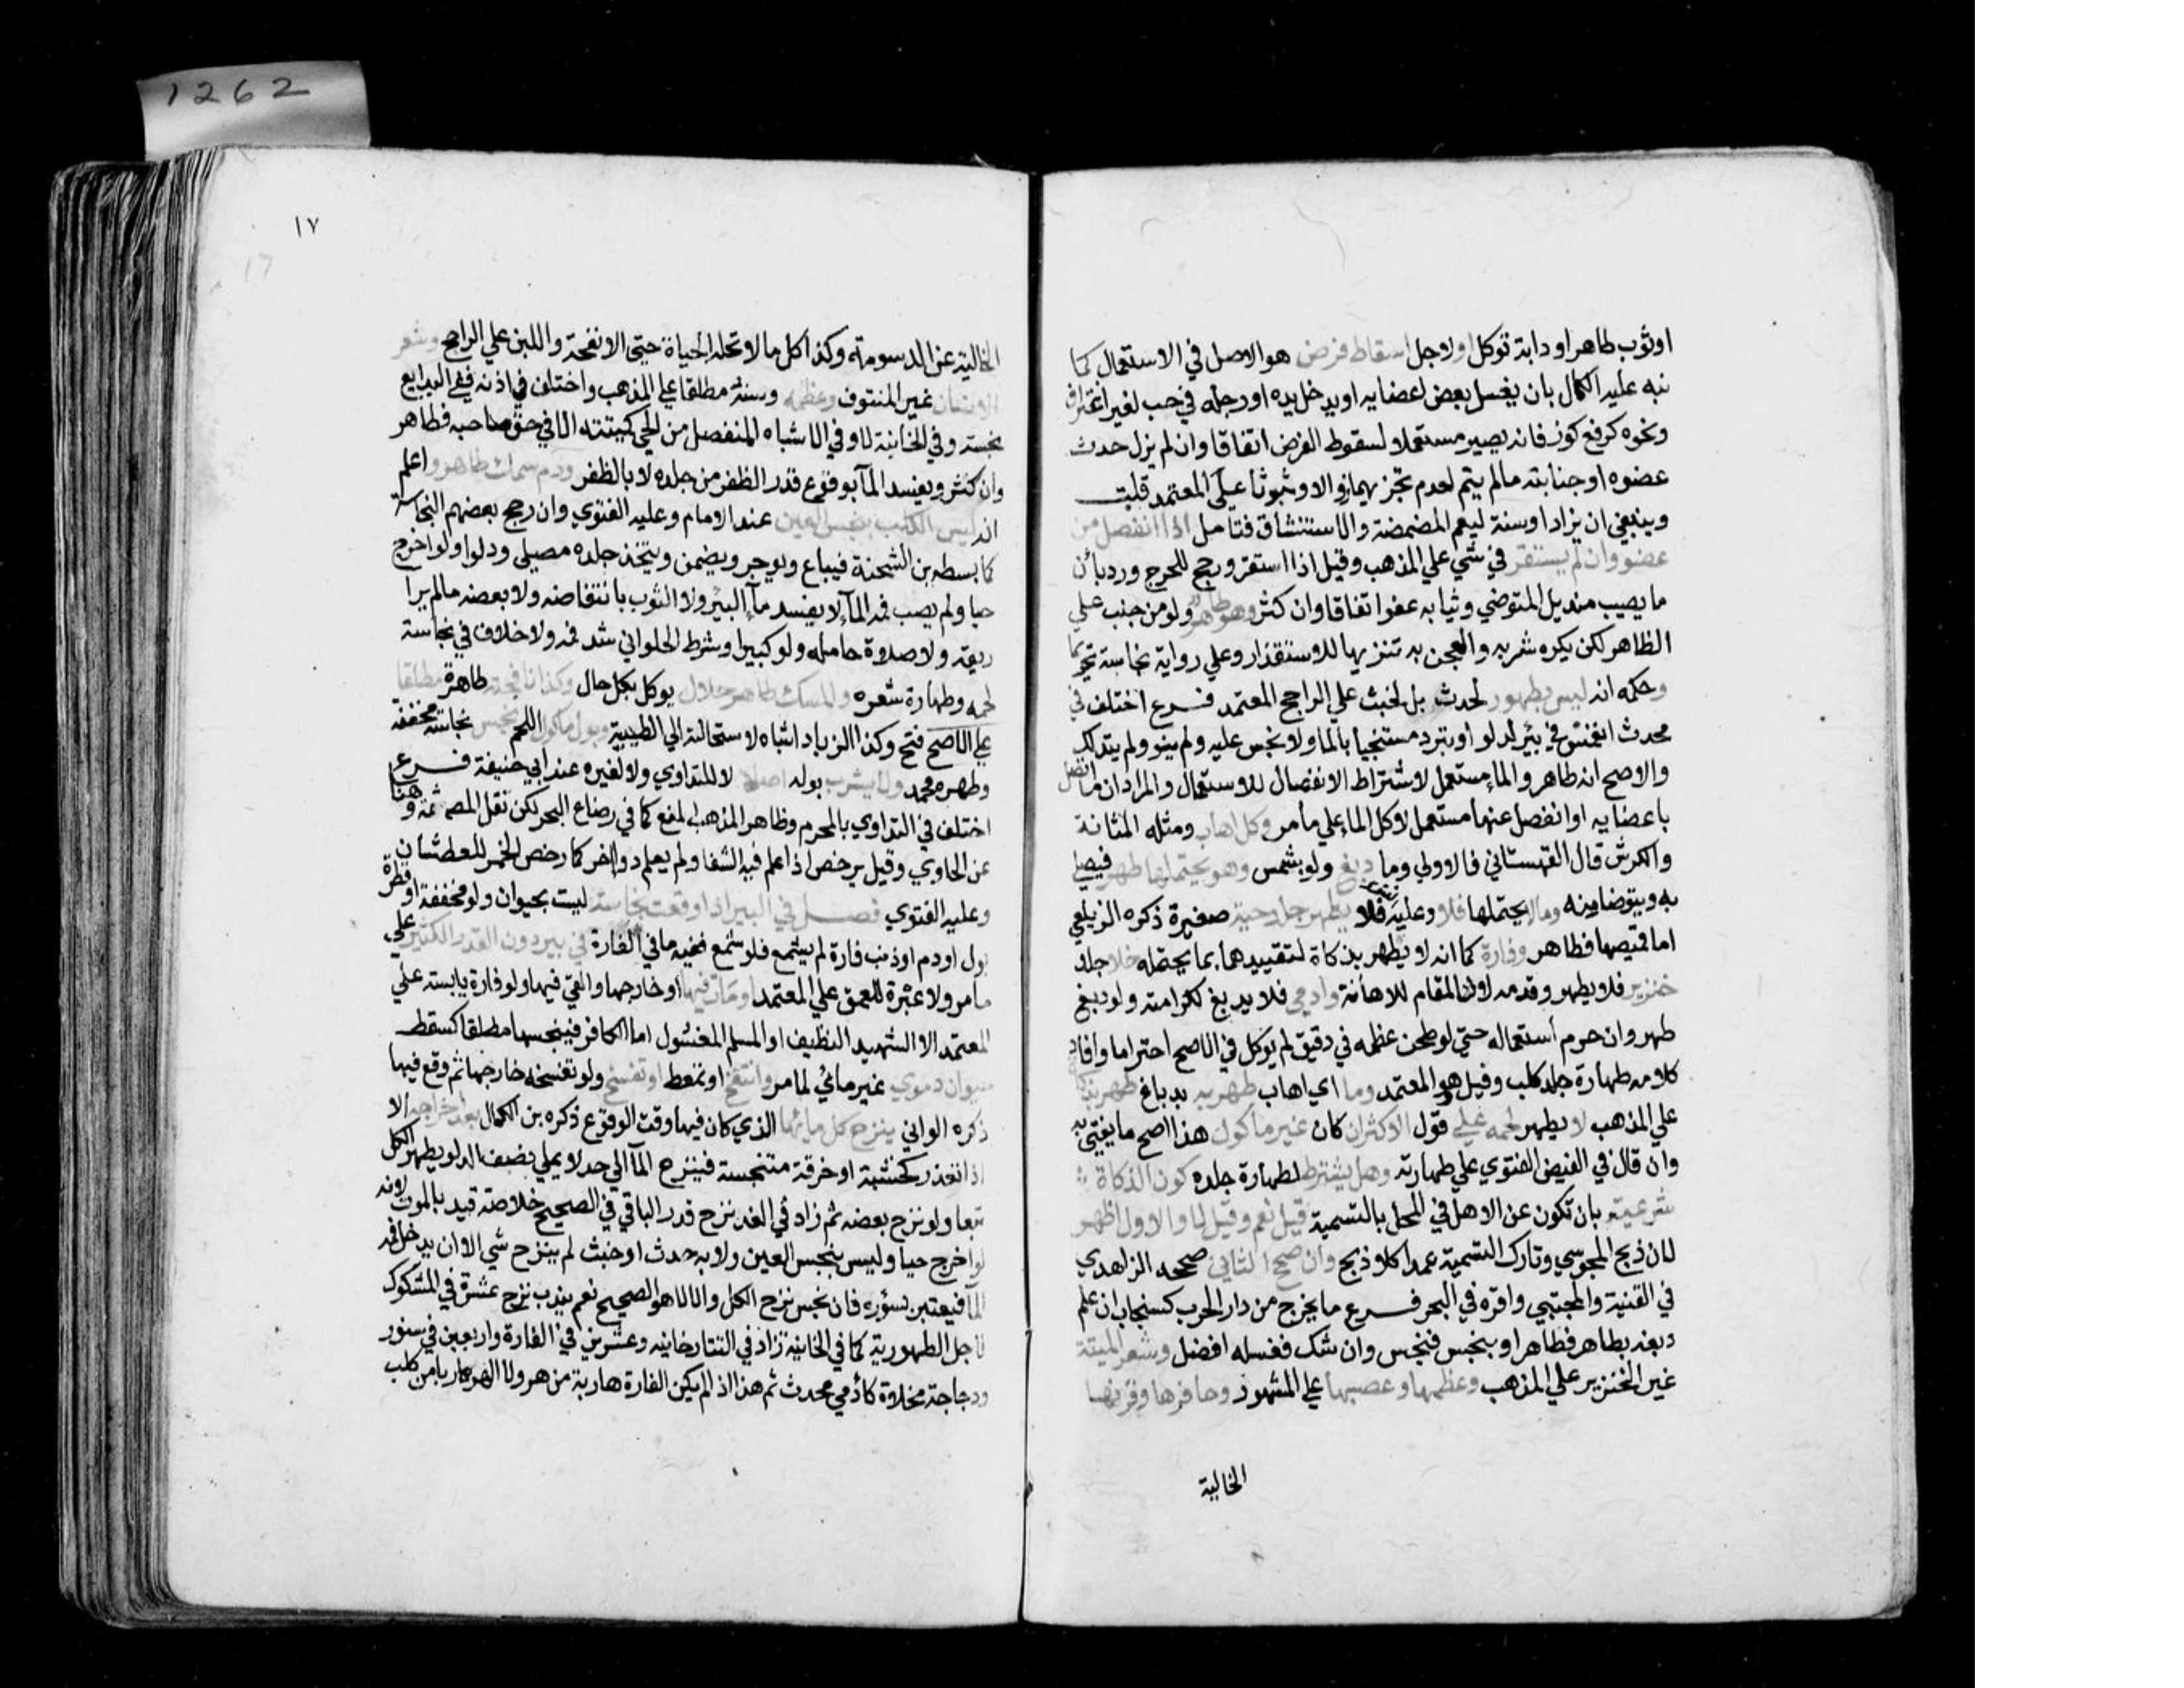 اوثوب طاهر او دابة توكل او لاجل اسقاط فرض هو الاصل في الاستعمال كما
نبه عليه الكمال بان يغسل بعض اعضايه او يدخل يده او رجله في حب لغير اغتراف
ونحوه كرفع كوز فانه يصير مستعملا لسقوط الفرض اتفاقا وان لم يزل حدث
عضوه او جنابته مالم يتم لعدم تجزيهما زوالا وثبوتا علي المعتمد قلت
وينبغي ان يزاد او سنة ليعم المضمضة والاستنشاق فتامل اذا انفصل من
عضو وان لم يستقر في شي علي المذهب وقيل اذا استقر ورجح للحرج ورد بأن
ما يصيب منديل المتوضي وثيابه عفو اتفاقا وان كثر وهو طاهر ولو من جنب علي
الظاهر لكن يكره شربه والعجن به تنزيها للاستقذار وعلي رواية نجاسته تحريما
وحكمه انه ليس بطهور لحدث بل لخبث علي الراجح المعتمد فرع اختلف في
محدث انغمس في بئر لدلو او تبرد مستنجيا بالما ولا نجس عليه ولم ينو ولم يتدلك
والاصح انه طاهر والما مستعمل لاشتراط الانفصال للاستعمال والمراد ان ما اتصل
باعضايه او انفصل عنها مستعمل لا كل الما علي ما مر وكل اهاب ومثله المثانة
والكرش قال القهستاني فالاولي وما دبغ ولو بشمس وهو يحتملها طهر فيصلي
به ويتوضا منه وما لا يحتملها فلا وعليه فلا يطهر جلد حية صغيرة ذكره الزيلعي
اما قميصها فطاهر وفارة كما انه لا يطهر بذكاة لتقييدهما بما يحتمله خلا جلد
خنزير فلا يطهر وقدمه لان المقام للاهانة وادمي فلا يدبغ لكرامته ولو دبغ
طهر وان حرم استعماله حتي لو طحن عظمه في دقيق لم يوكل في الاصح احتراما وافاد
كلامه طهارة جلد كلب وفيل هو المعتمد وما اي اهاب طهر به بدباغ طهر بذكاة
علي المذهب لا يطهر لحمه علي قول الاكثر ان كان غير ماكول هذا اصح ما يفتي به
وان قال في الفيض الفتوي علي طهارته وهل يشترط لطهارة جلده كون الذكاة
شرعية بان تكون عن الاهل في المحل بالتسمية قيل نعم وقيل لا والاول اظهر
لان ذبح المجوسي وتارك التسمية عمدا كلا ذبح وان صحح الثاني صححه الزاهدي
في القنية والمجتبي واقره في البحر فرع ما يخرج من دار الحرب كسنجاب ان علم
دبغه بطاهر فطاهر او بنجس فنجس وان شك فغسله افضل وشعر الميتة
غير الخنزير علي المذهب وعظمها وعصبها علي المشهور وحافرها وقرنها
الخالية
١٧
17
الخالية عن الدسومة وكذا كل ما لا تحله الحياة حتي الانفحة واللبن علي الراجح وشعر
الانسان غير المنتوف وعظمه وسنه مطلقا علي المذهب واختلف في اذنه ففي البدايع
نجسة وفي الخانية لا وفي الاشباه المنفصل من الحي كميتته الا في حق صاحبه فطاهر
وان كثر ويفسد المآ بوقوع قدر الظفر من جلده لا بالظفر ودم سمك طاهر واعلم
انه ليس الكلب بنجس العين عند الامام وعليه الفتوي وان رجح بعضهم النجاسة
كما بسطه بن الشحنة فيباع ويوجر ويضمن ويتخذ جلده مصلي ودلوا ولو اخرج
حيا ولم يصب فمه المآ لا يفسد مآ البير ولا الثوب بانتفاضه ولا بعضه مالم يرا
ريقه ولا صلاة حامله ولو كبيرا وشرط الحلواني شد فمه ولا خلاف في نجاسة
لحمه وطهارة شعره والمسك طاهر حلال يوكل بكل حال وكذا نافجته طاهرة مطلقا
علي الاصح فتح وكذا الزباد اشباه لاستحالته الي الطيبية وبول ماكول اللحم نجس نجاسة مخففة
وطهره محمد ولا يشرب بوله اصلا لا للتداوي ولا لغيره عند ابي حنيفة فرع
اختلف في التداوي بالمحرم وظاهر المذهب المنع كما في رضاع البحر لكن نقل المص ثمة وهنا
عن الحاوي وقيل يرخص اذا علم فيه الشفا ولم يعلم دوا اخر كما رخص الخمر للعطشان
وعليه الفتوي فصل في البير اذا وقعت نجاسة ليست بحيوان ولو مخففة او قطرة
بول او دم او ذنب فارة لم يشمع فلو شمع ففيه ما في الفارة في بير دون القدر الكثير علي
ما مر ولا عبرة للعمق علي المعتمد او مات فيها او خارجها والقي فيها ولو فارة يابسة علي
المعتمد الا الشهيد النظيف او المسلم المغسول اما الكافر فينجسها مطلقا كسقط
حيوان دموي غير مائي لما مر وانتفخ او تمعط او تفسخ ولو تفسخه خارجها ثم وقع فيها
ذكره الواني ينزح كل مائها الذي كان فيها وقت الوقوع ذكره بن الكمال بعد اخراجه الا
اذا تعذر كخشبة او خرقة متنجسة فينزح المآ الي حد لا يملي نصف الدلو يطهر الكل
تبعا ولو نزح بعضه ثم زاد في الغد نزح قدر الباقي في الصحيح خلاصة قيد بالموت لانه
لو اخرج حيا وليس بنجس العين ولا به حدث او خبث لم ينزح شي الا ان يدخل فمه
المآ فيعتبر بسؤره فان نجس نزح الكل والا لا هو الصحيح نعم يندب نزح عشرة في المشكوك
لاجل الطهورية كما في الخانية زاد في التتارخانيه وعشرين في الفارة واربعين في سنور
ودجاجة مخلاة كآدمي محدث ثم هذا اذا لم يكن الفارة هاربة من هر ولا الهر هاربا من كلب
1262